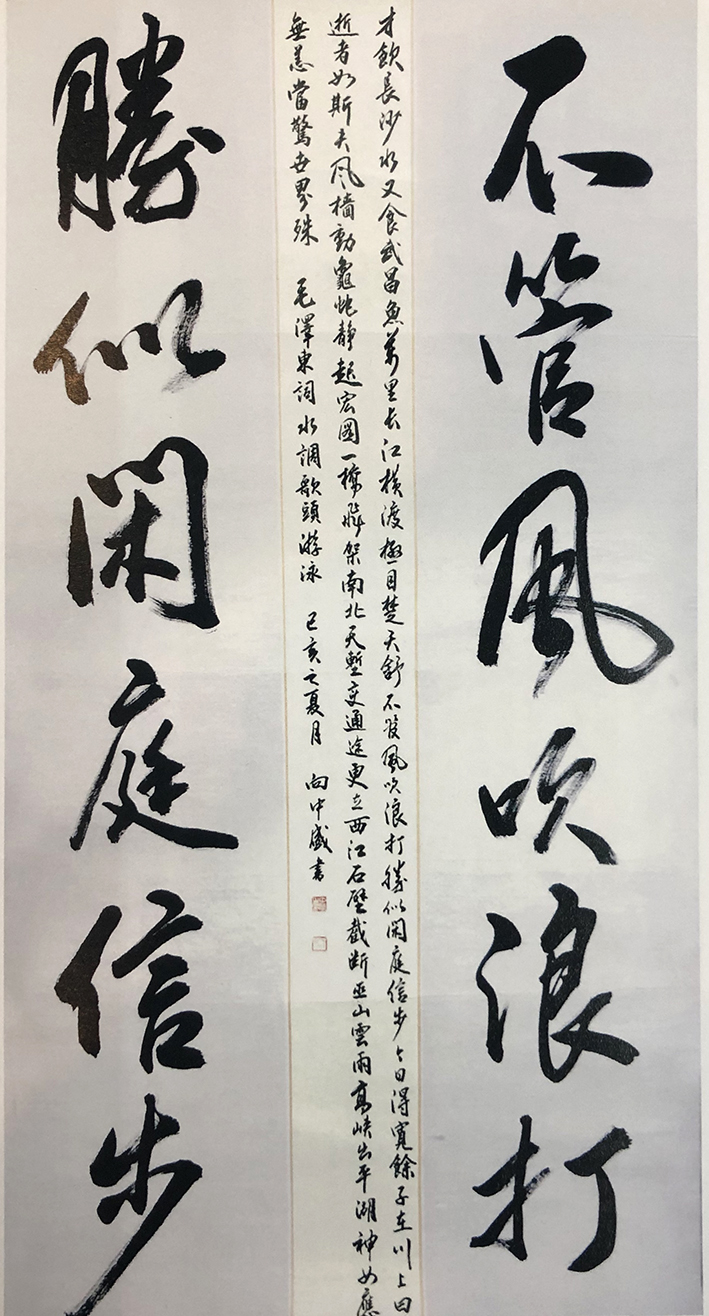 不管風吹浪打
才飲長沙水又食武昌魚萬里长江橫渡極目楚天舒不管風吹浪打勝似閑庭信步今日得寬餘子在川上曰
逝者如斯夫風檣動龜蛇靜起宏圖一橋飛架南北天塹变通途更立西江石壁截断巫山雲雨高峡出平湖神女應
無恙當驚世界殊 毛澤東詞水調歌頭游泳 己亥之夏月 向中盛書
勝似閑庭信步